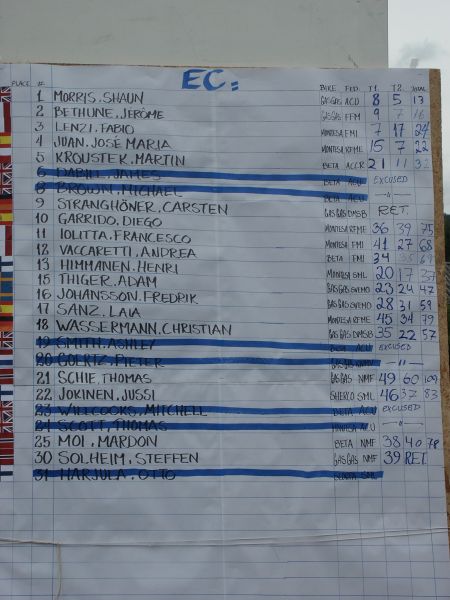 EC:
PLACE # BIKE FED. T1 T2 TOTAL
1 MORRIS, SHAUN GASGAS ACU 8 5 13
2 BETHUNE, JERÔME GASGAS FFM 9 7 16
3 LENZI, FABIO MONTESA FMI 7 17 24
4 JUAN, JOSÉ MARIA MONTESA RFME 15 7 22
5 KROUSTEK, MARTIN BETA ACCR 21 11 32
6 DABILL, JAMES BETA ACU EXCUSED
8 BROWN, MICHAEL BETA ACU -"-
9 STRANGHÖNER, CARSTEN GASGAS DMSB RET.
10 GARRIDO, DIEGO MONTESA RFME 36 39 75
11 IOLITTA, FRANCESCO MONTESA FMI 41 27 68
12 VACCARETTI, ANDREA BETA FMI 34 35 69
13 HIMMANEN, HENRI MONTESA SML 20 17 37
15 THIGER, ADAM GASGAS SVEMO 23 24 47
16 JOHANSSON, FREDRIK GASGAS SVEMO 28 31 59
17 SANZ, LAIA MONTESA RFME 45 34 79
18 WASSERMANN, CHRISTIAN GASGAS DMSB 35 22 57
19 SMITH, ASHLEY BETA ACU EXCUSED
20 GOERTZ, PIETER GASGAS -"-
21 SCHIE, THOMAS GASGAS NMF 49 60 109
22 JOKINEN, JUSSI SHERCO SML 46 37 83
23 WILLCOCKS, MITCHELL BETA ACU EXCUSED
24 SCOTT, THOMAS MONTESA ACU -"-
25 MOI, MARDON BETA NMF 38 40 78
30 SOLHEIM, STEFFEN GASGAS NMF 39 RET.
31 HARJULA, OTTO SML